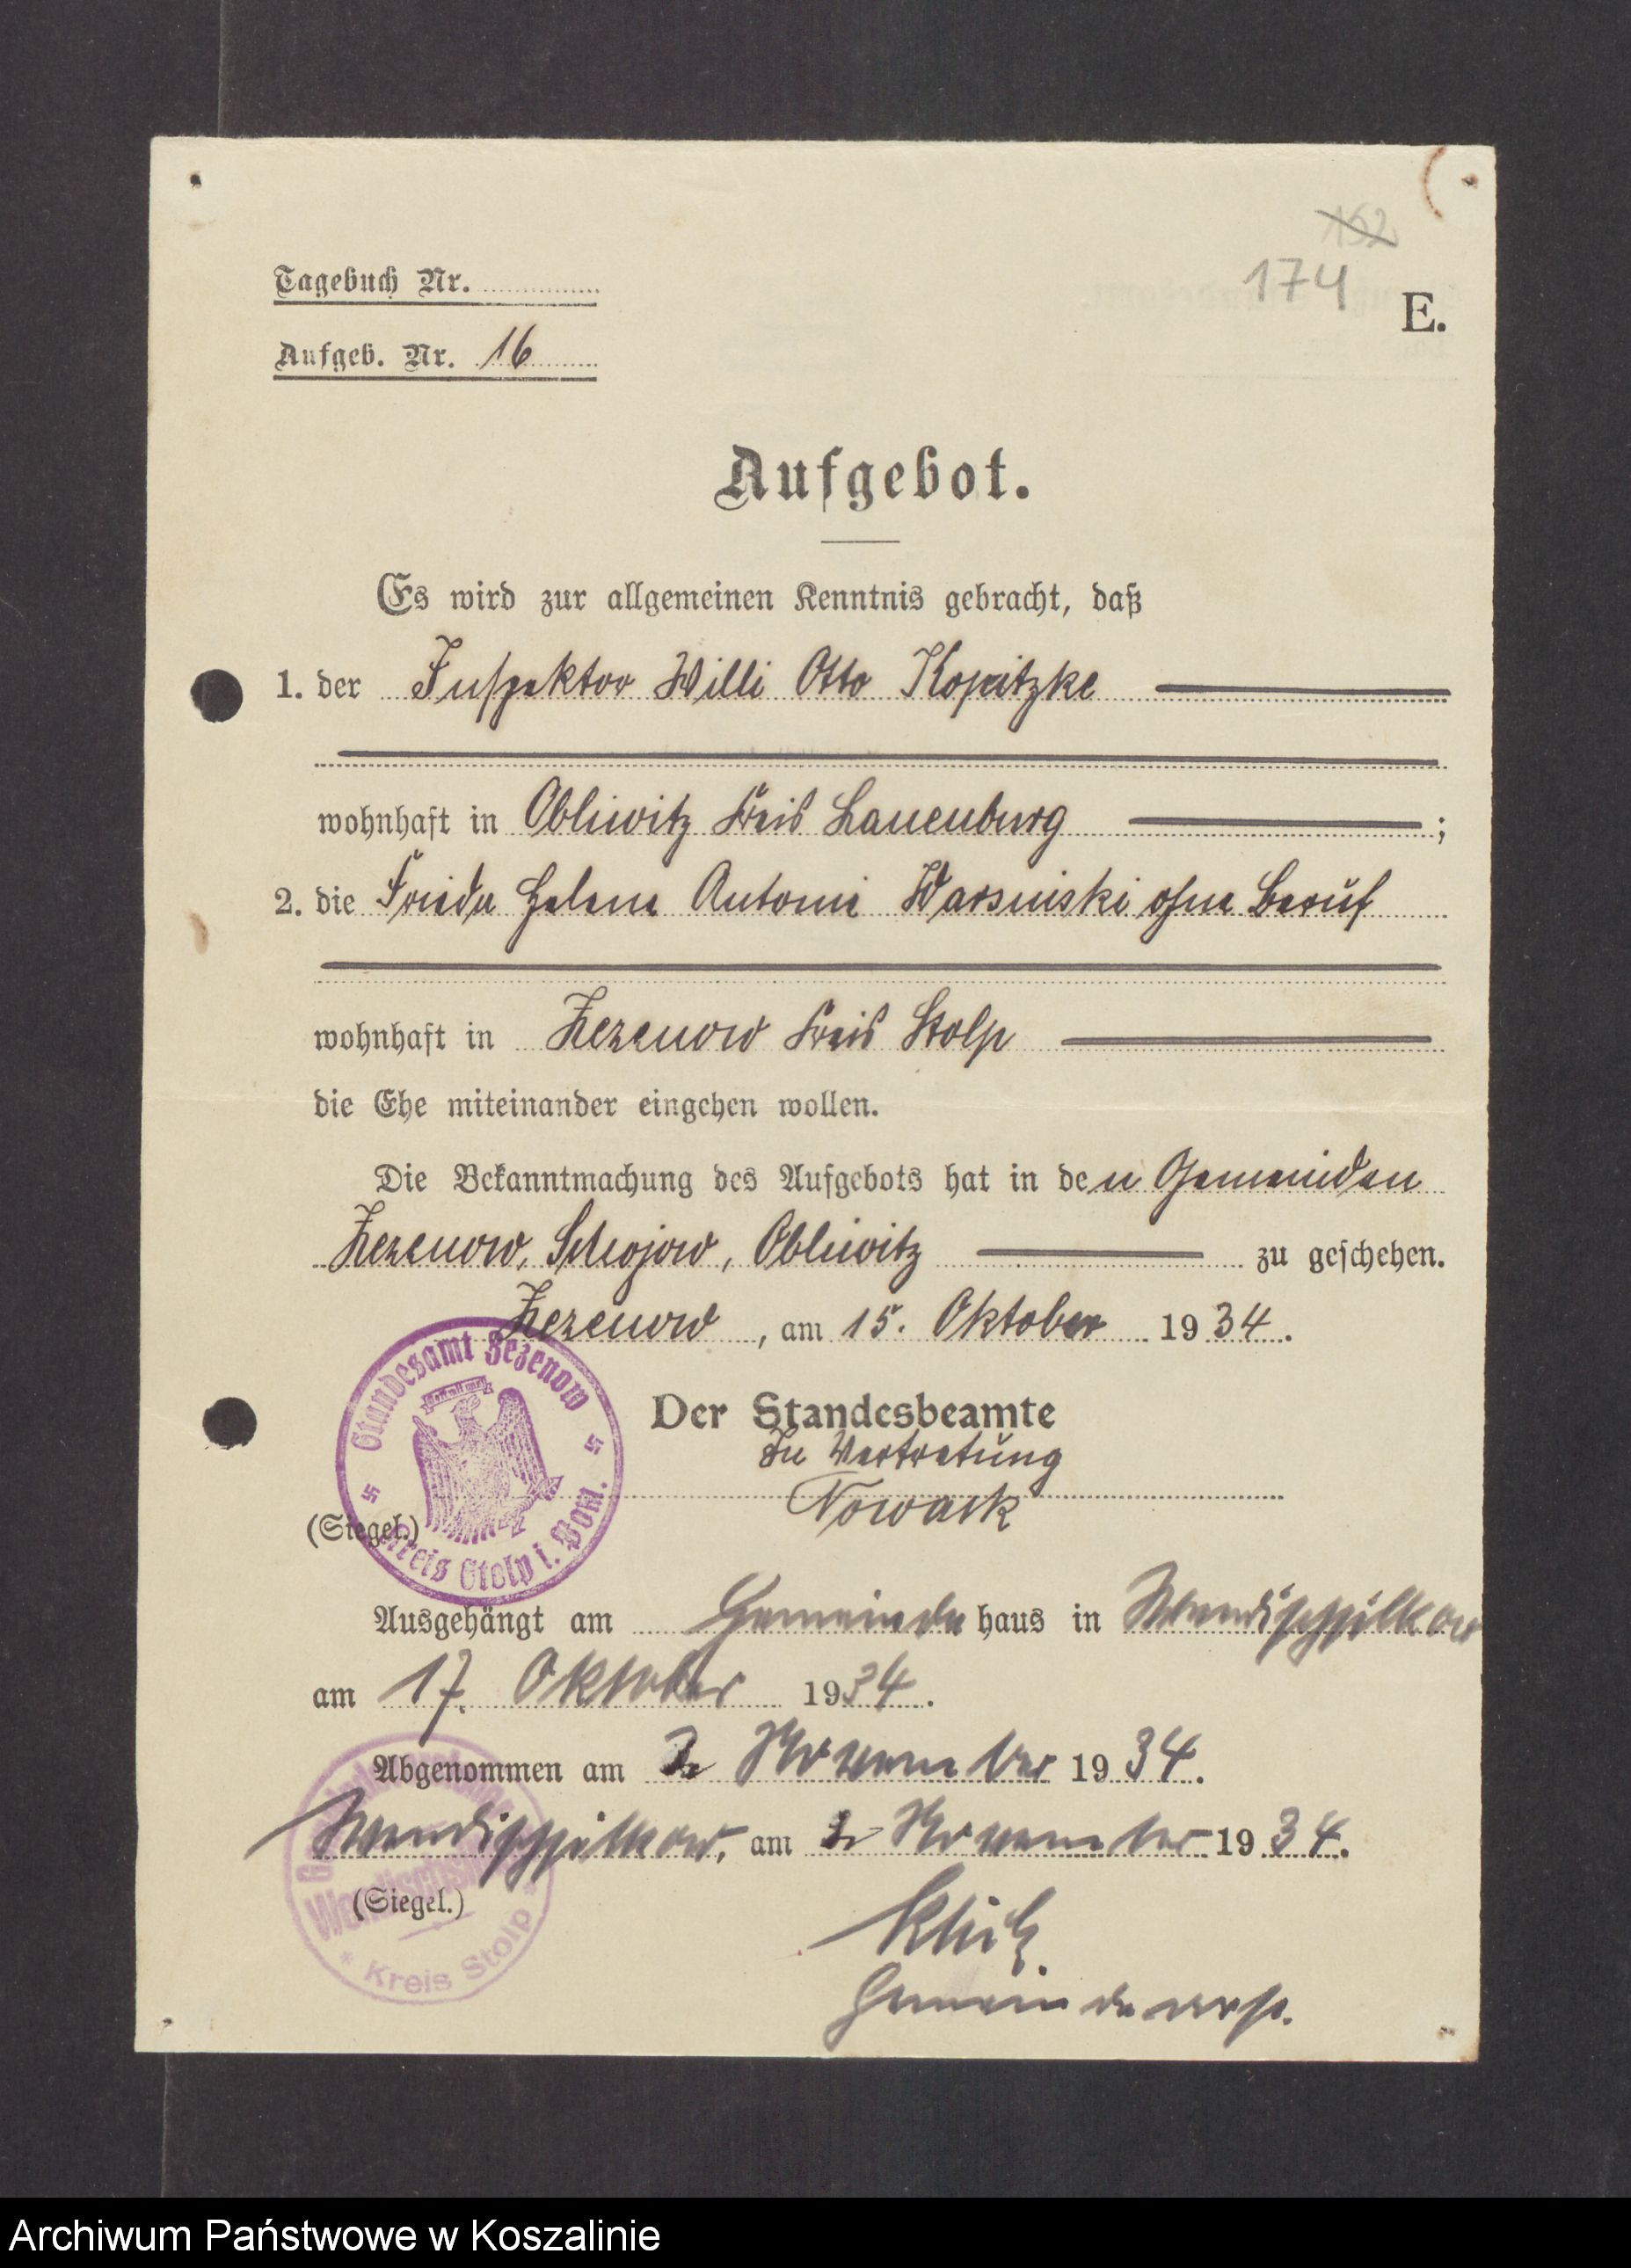 152
174
E.
Tagebuch Nr.
Aufgeb. Nr. 16
Aufgebot.
Es wird zur allgemeinen Kenntnis gebracht, daß
1. der Inspektor Willi Otto Kopitzke
wohnhaft in Obliwitz Kreis Lauenburg ;
2. die Frieda Helene Antonie Warsinski ohne Beruf
wohnhaft in Zezenow Kreis Stolp
die Ehe miteinander eingehen wollen.
Die Bekanntmachung des Aufgebots hat in den Gemeinden
Zezenow, Schojow, Obliwitz zu geschehen.
Zezenow, am 15. Oktober 1934.
Standesamt Zezenow
Kreis Stolp i. Pom.
Der Standesbeamte
In Vertretung
Nowack
(Siegel.)
Ausgehängt am Gemeindehaus in Wendischsilkow
am 17. Oktober 1934.
Abgenommen am 2 November 1934.
Wendischsilkow, am 2 November 1934.
(Siegel.)
Kreis Stolp
Gemeindevorst.
Archiwum Państwowe w Koszalinie